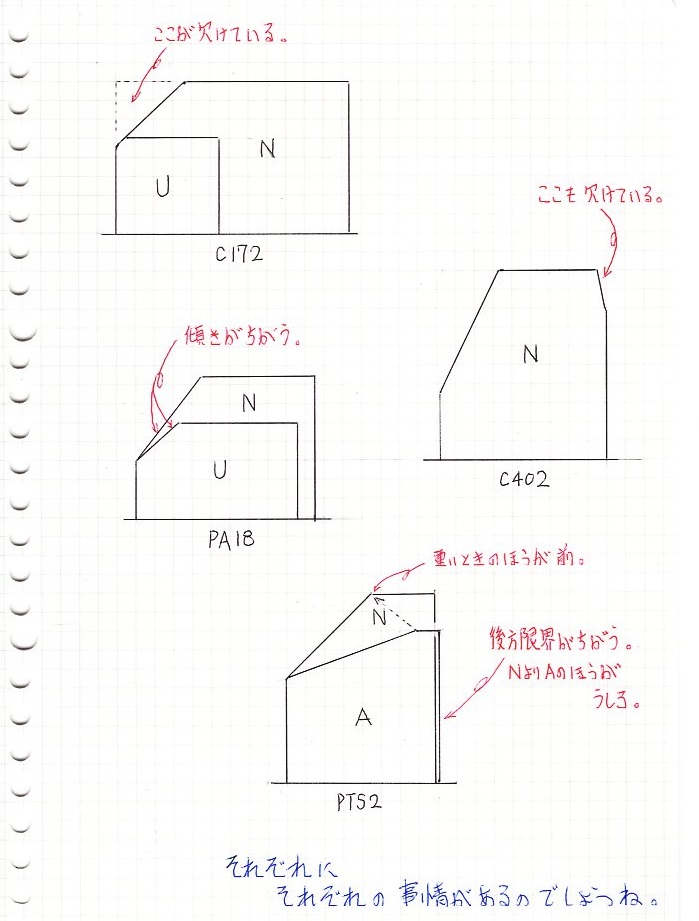 ここが欠けている。
N
U
C172
ここも欠けている。
N
C402
傾きがちがう。
N
U
PA18
重いときのほうが前。
N
後方限界がちがう。
NよりAのほうが
うしろ。
A
PTS2
それぞれに
それぞれの事情があるのでしょうね。